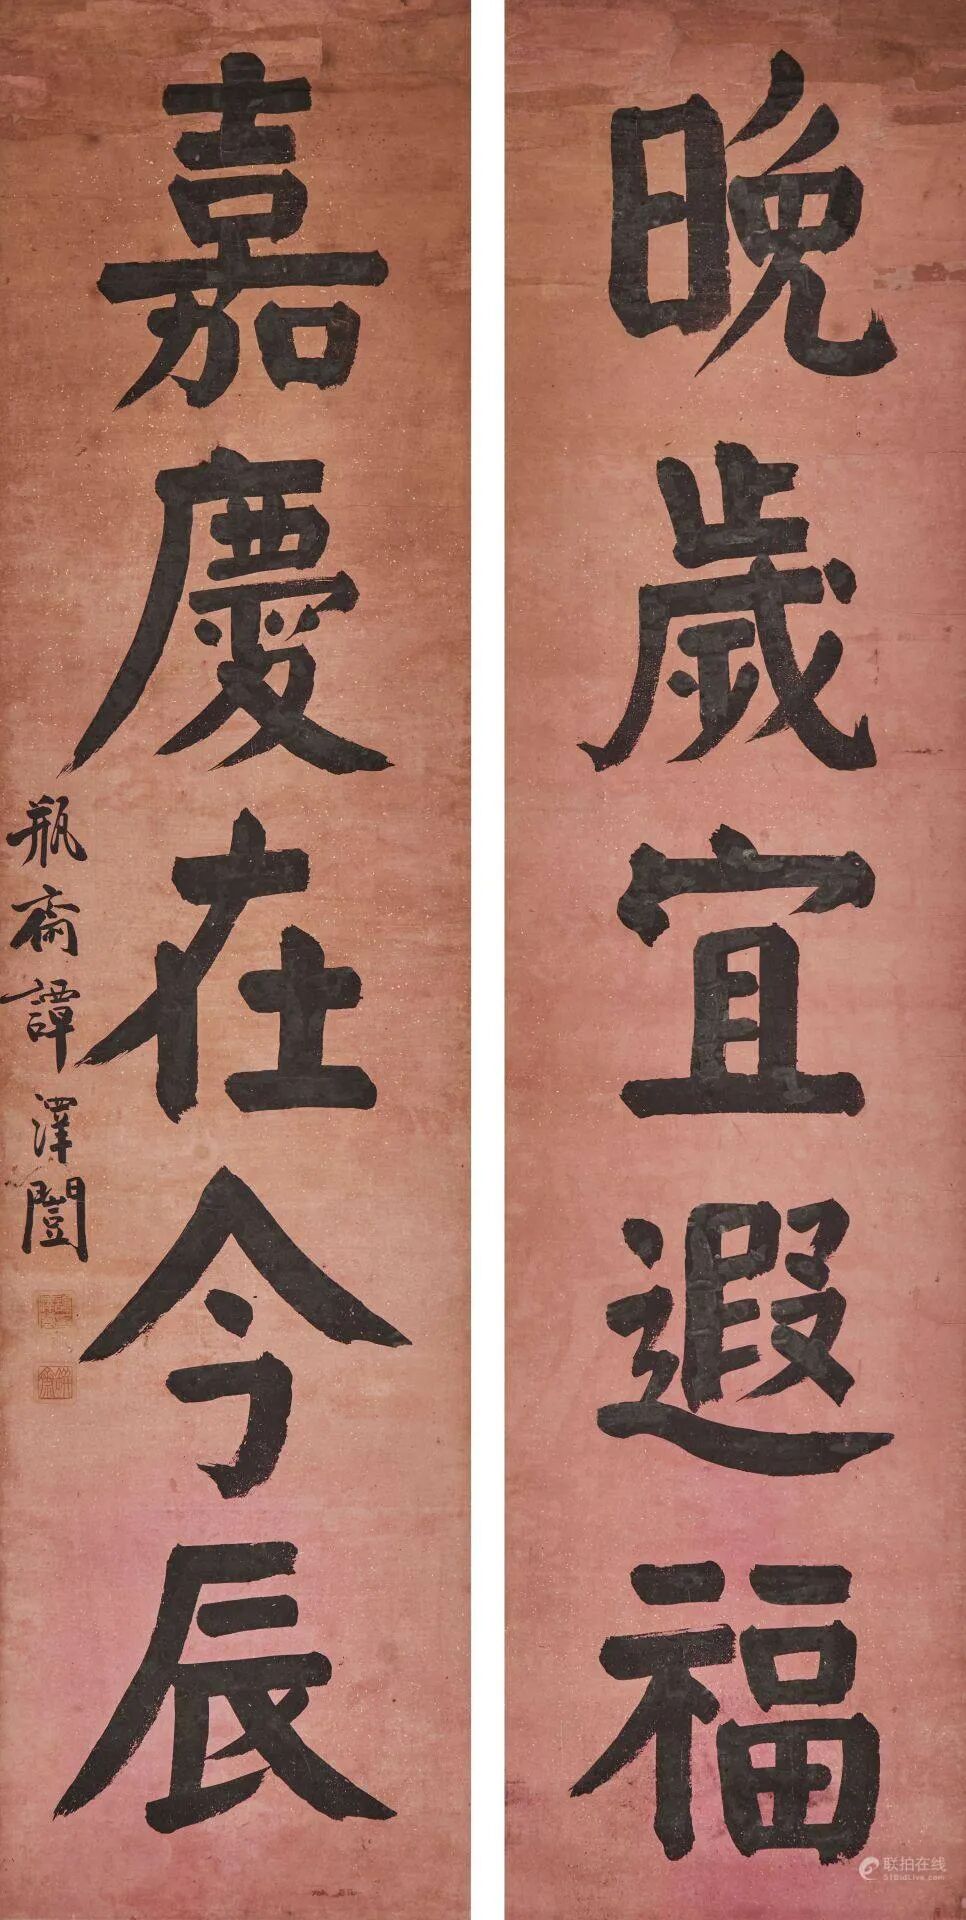 晚歲宜遐福
嘉慶在今辰
瓶齋譚澤闓
联拍在线
51BidLive.com